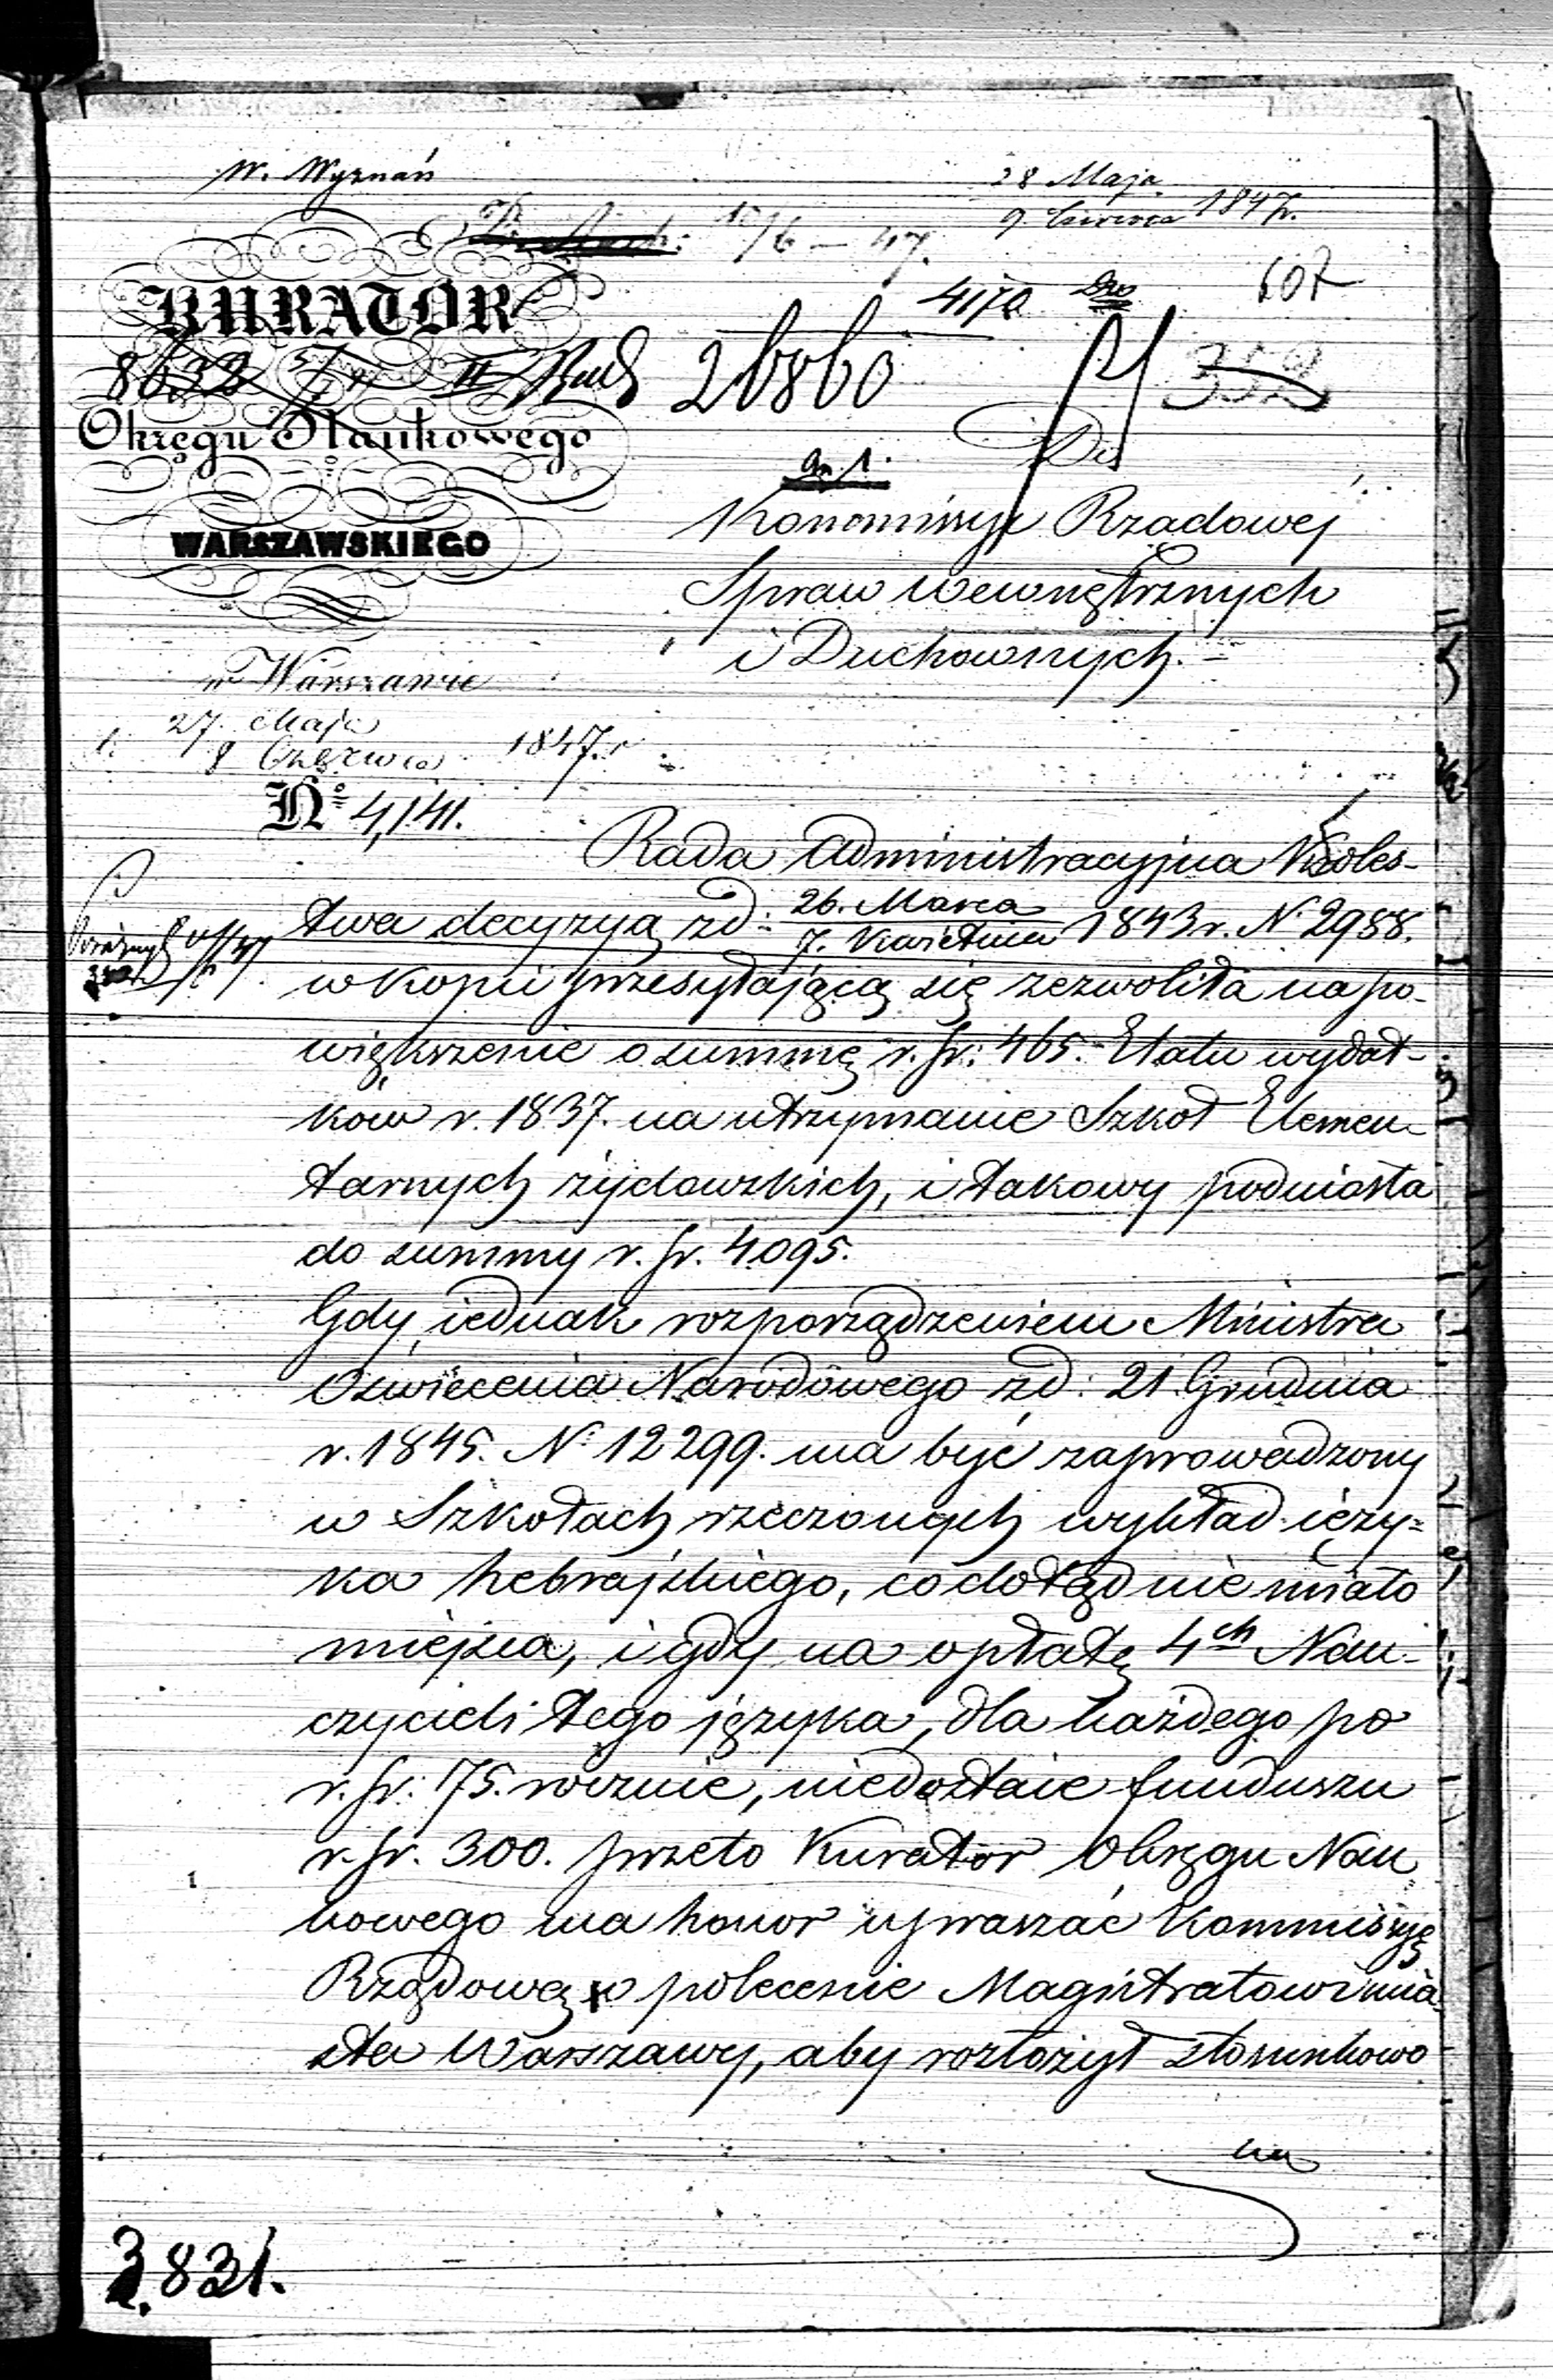 W. Wyznań
28 Maja
9. Czerwca 1847r.
10/6 – 47.
4170
607
KURATOR
8632 II 26860
352
Okręgu Naukowego
Do
an. 1.
Kommissyi Rządowej
WARSZAWSKIEGO
Spraw Wewnętrznych
i Duchownych.
w Warszawie
d. 27. Maja
8 Czerwca 1847.r
No 4,141.
Rada Administracyjna Króles-
twa decyzyą zd: 26. Marca
7. Kwietnia 1843 r. N. 2988.
w kopii przesyłającą się zezwoliła na po-
większenie o summę r. sr: 465. Etatu wydat-
ków r. 1837. na utrzymanie Szkół Elemen-
tarnych żydowskich, i takowy podniosła
do summy r. sr. 4095.
Gdy iednak rozporządzeniem Ministra
Oświecenia Narodowego zd: 21 Grudnia
r. 1845. N: 12299. ma być zaprowadzony
w Szkołach rzeczonych wykład ięzy=
ka hebrajskiego, co dotąd nie miało
miejsca, i gdy na opłatę 4ch Nau-
czycieli tego języka, dla każdego po
r. sr: 75. rocznie, niedostaie funduszu
r. sr. 300. przeto Kurator Okręgu Nau
kowego ma honor upraszać Kommissyę
Rządową o polecenie Magistratowi mia-
sta Warszawy, aby rozłożył stosunkowo
na
3,831.